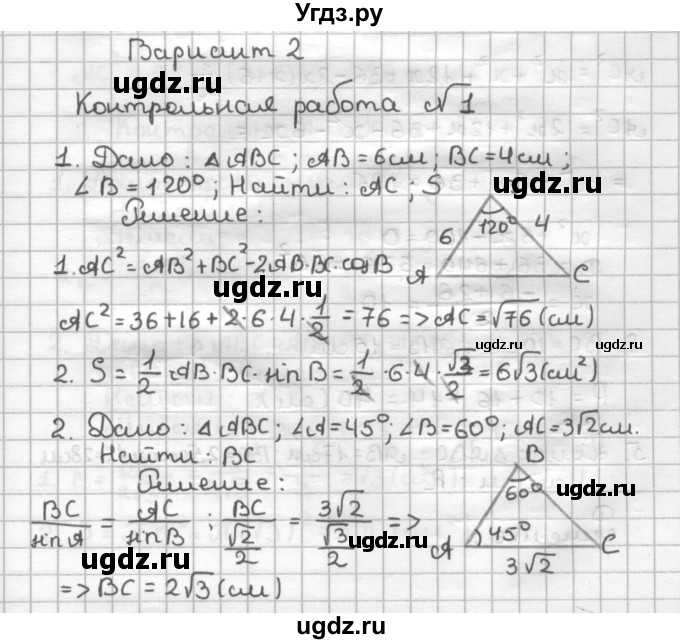 Угдз.ру
Вариант 2
ugdz.ru
Контрольная работа №1
1. Дано: △ABC; AB=6см; BC=4см;
∠B=120°; Найти: AC; S
ugdz.ru
Решение:
120°
6
4
A
C
1. AC²=AB²+BC²-2AB·BC·cosB
ugdz.ru
AC²=36+16+2·6·4·1/2=76=>AC=√76(см)
ugdz.ru
2. S=1/2 AB·BC·sinB=1/2·6·4·√3/2=6√3(см²)
2. Дано: △ABC; ∠A=45°; ∠B=60°; AC=3√2см.
ugdz.ru
Найти: BC
B
Решение:
60°
ugdz.ru
BC/sinA=AC/sinB; BC/(√2/2)=3√2/(√3/2)=>
ugdz.ru
A
45°
C
3√2
ugdz.ru
=>BC=2√3(см)
ugdz.ru